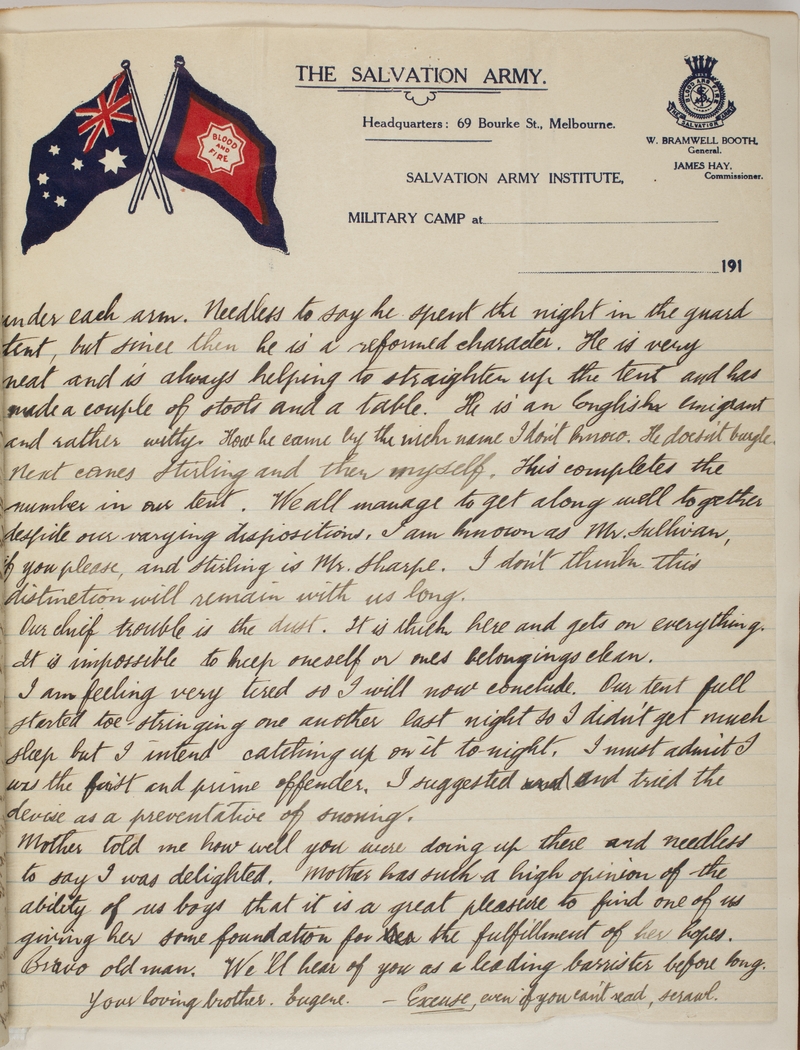 THE SALVATION ARMY.
Headquarters: 69 Bourke St., Melbourne.
BLOOD AND FIRE
BLOOD AND FIRE
THE SALVATION ARMY
W. BRAMWELL BOOTH,
General.
JAMES HAY,
Commissioner.
SALVATION ARMY INSTITUTE,
MILITARY CAMP at
191
under each arm. Needless to say he spent the night in the guard
tent, but since then he is a reformed character. He is very
neat and is always helping to straighten up the tent and has
made a couple of stools and a table. He is an English emigrant
and rather witty. How he came by the nick name I don't know. He doesn't bugle.
Next comes Stirling and then myself. This completes the
number in our tent. We all manage to get along well together
despite our varying dispositions. I am known as Mr. Sullivan,
if you please, and Stirling is Mr. Sharpe. I don't think this
distinction will remain with us long.
Our chief trouble is the dust. It is thick here and gets on everything.
It is impossible to keep oneself or ones belongings clean.
I am feeling very tired so I will now conclude. Our tent full
started toe-stringing one another last night so I didn't get much
sleep but I intend catching up on it to-night. I must admit I
was the first and prime offender. I suggested and and tried the
devise as a preventative of snoring.
Mother told me how well you were doing up there and needless
to say I was delighted. Mother has such a high opinion of the
ability of us boys that it is a great pleasure to find one of us
giving her some foundation for the fulfillment of her hopes.
Bravo old man. We'll hear of you as a leading barrister before long.
Your loving brother. Eugene. - Excuse, even if you can't read, scrawl.